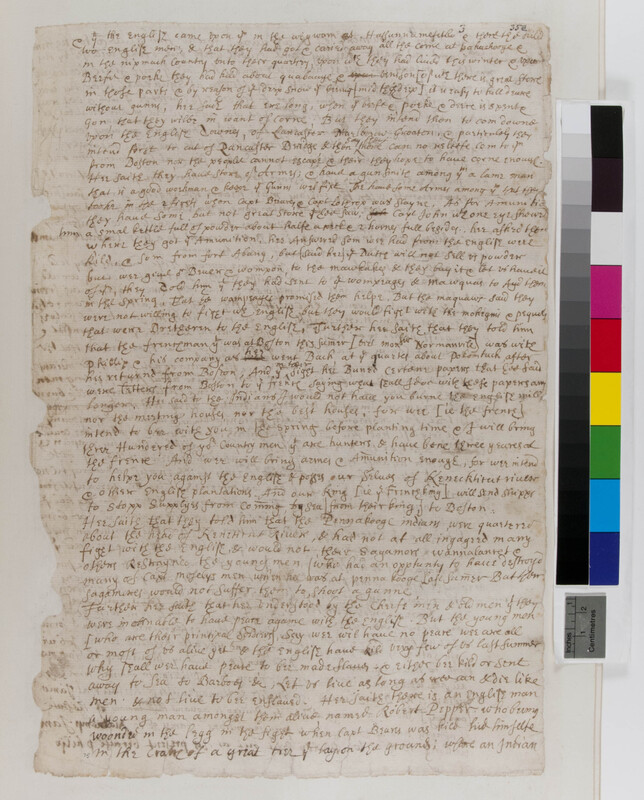 3 352
yt the English came upon ym in the wigwam at Hassunnemesitt & there the kild
two English men, & that they had got & carried away all the corne at pakachooge &
in the nipmuck Country unto these quarters, upon wch they had lived this winter &
Beefe & porke they had had about Quabauge & there is great store
in those parts & by reason of ye deep snow it is easy to kill deare
without gunns, hee saith that ere long, when yt beefe porke & deare is spent &
gon that they wilbe in want of corne. But they intend then to com downe
upon the English Townes, of Lancaster Marlborow Groaten, & particulerly they
intend first to cut of Lancaster Bridge & then there can no releefe com to ym
from Boston nor the people cannot escape & their they hope to have corne enough.
Hee saith they have store of Armes, & have a gunsmith among ym a lame man
that is a good workman & keeps ye Gunns well fixt. They have some Armes among ym that they
tooke in the 2 fights when Capt Beares & Capt Lathrop was slayne. As for Amunition
they have some but not great store of that hee saw, Capt John wth one eye, shewed
him a smal kettle full of powder about halfe a peck & 2 hornes full besides. hee asked them
where they got yr Amunition. hee answered som wee had from the english were
kild, & som from fort Albany, but (said hee) ye Dutch will not sell us powder
but wee give or Bever & wompom, to the mawhakes & they buy it & let us have it
of ym, they Told him yt they had sent to ye wompeages & mawquas to Ayd them
in the Spring, that ye wampeages promised them helpe. But the maquaws said they
were not willing to fight wth English, but they would fight with the mohegins & pequets
that were Brethren to the English; Further hee saith that they told him
that the frenchman yt was at Boston this sumer [vizt monsr Normanvile] was with
philip & his company, as hee went Back at yr quarters about Pokomtuck after
his returne from Boston. And in their sight hee Burnt Certaine papers that hee said
were Letters from Boston to ye french, saying what shall I doe with these papers any
longer. Hee said to the Indians I would not have you burne the english mills
nor the meeting houses nor the best houses, for wee [ie the french]
intend to bee with you in the spring before planting time & I will bring
three Hundered of yor Country men yt are hunters & have bene three yeares at
the french. And wee will bring armes & Amunition enough for wee intend
to helpe you against the English & posses our selves of Keneckticut river
& other English plantations, And our king [ie ye French king] will send shipps
to stopp supplyes from coming by sea [from their king] to Boston.
Hee saith that they told him that the Pennakooge indians were quarterd
about the head of Keneticut River & had not at all ingaged in any
fight with the English & would not, their Sagamors wannalancet &
others Restrayned the young men [who had an opptunity to have destroyd
many of Capt Moselys men when he was at pennakooge last sumer But their
Sagamores would not suffer them to shoot a gunne.
Further hee saith that hee understood by the Cheefe men & old men yt they
were inclinable to have peace againe with the english. But the young men
[who are their principal soldiers] say wee wil have no peace wee are all
or most of us alive yet & the english have kild very few of us last summer
why shall wee have peace to bee made slaves, & either bee kild or sent
away to sea to Barbodos &c. Let us live as long as wee can & die like
men & not live to bee enslaved. Hee saith there is an English man
a young man amongst them alive named Robert Pepper who being
wounded in the legg in the fight when Capt Beares was kild hid himselfe
in the Crach of a great tree yt lay on the ground; where an Indian